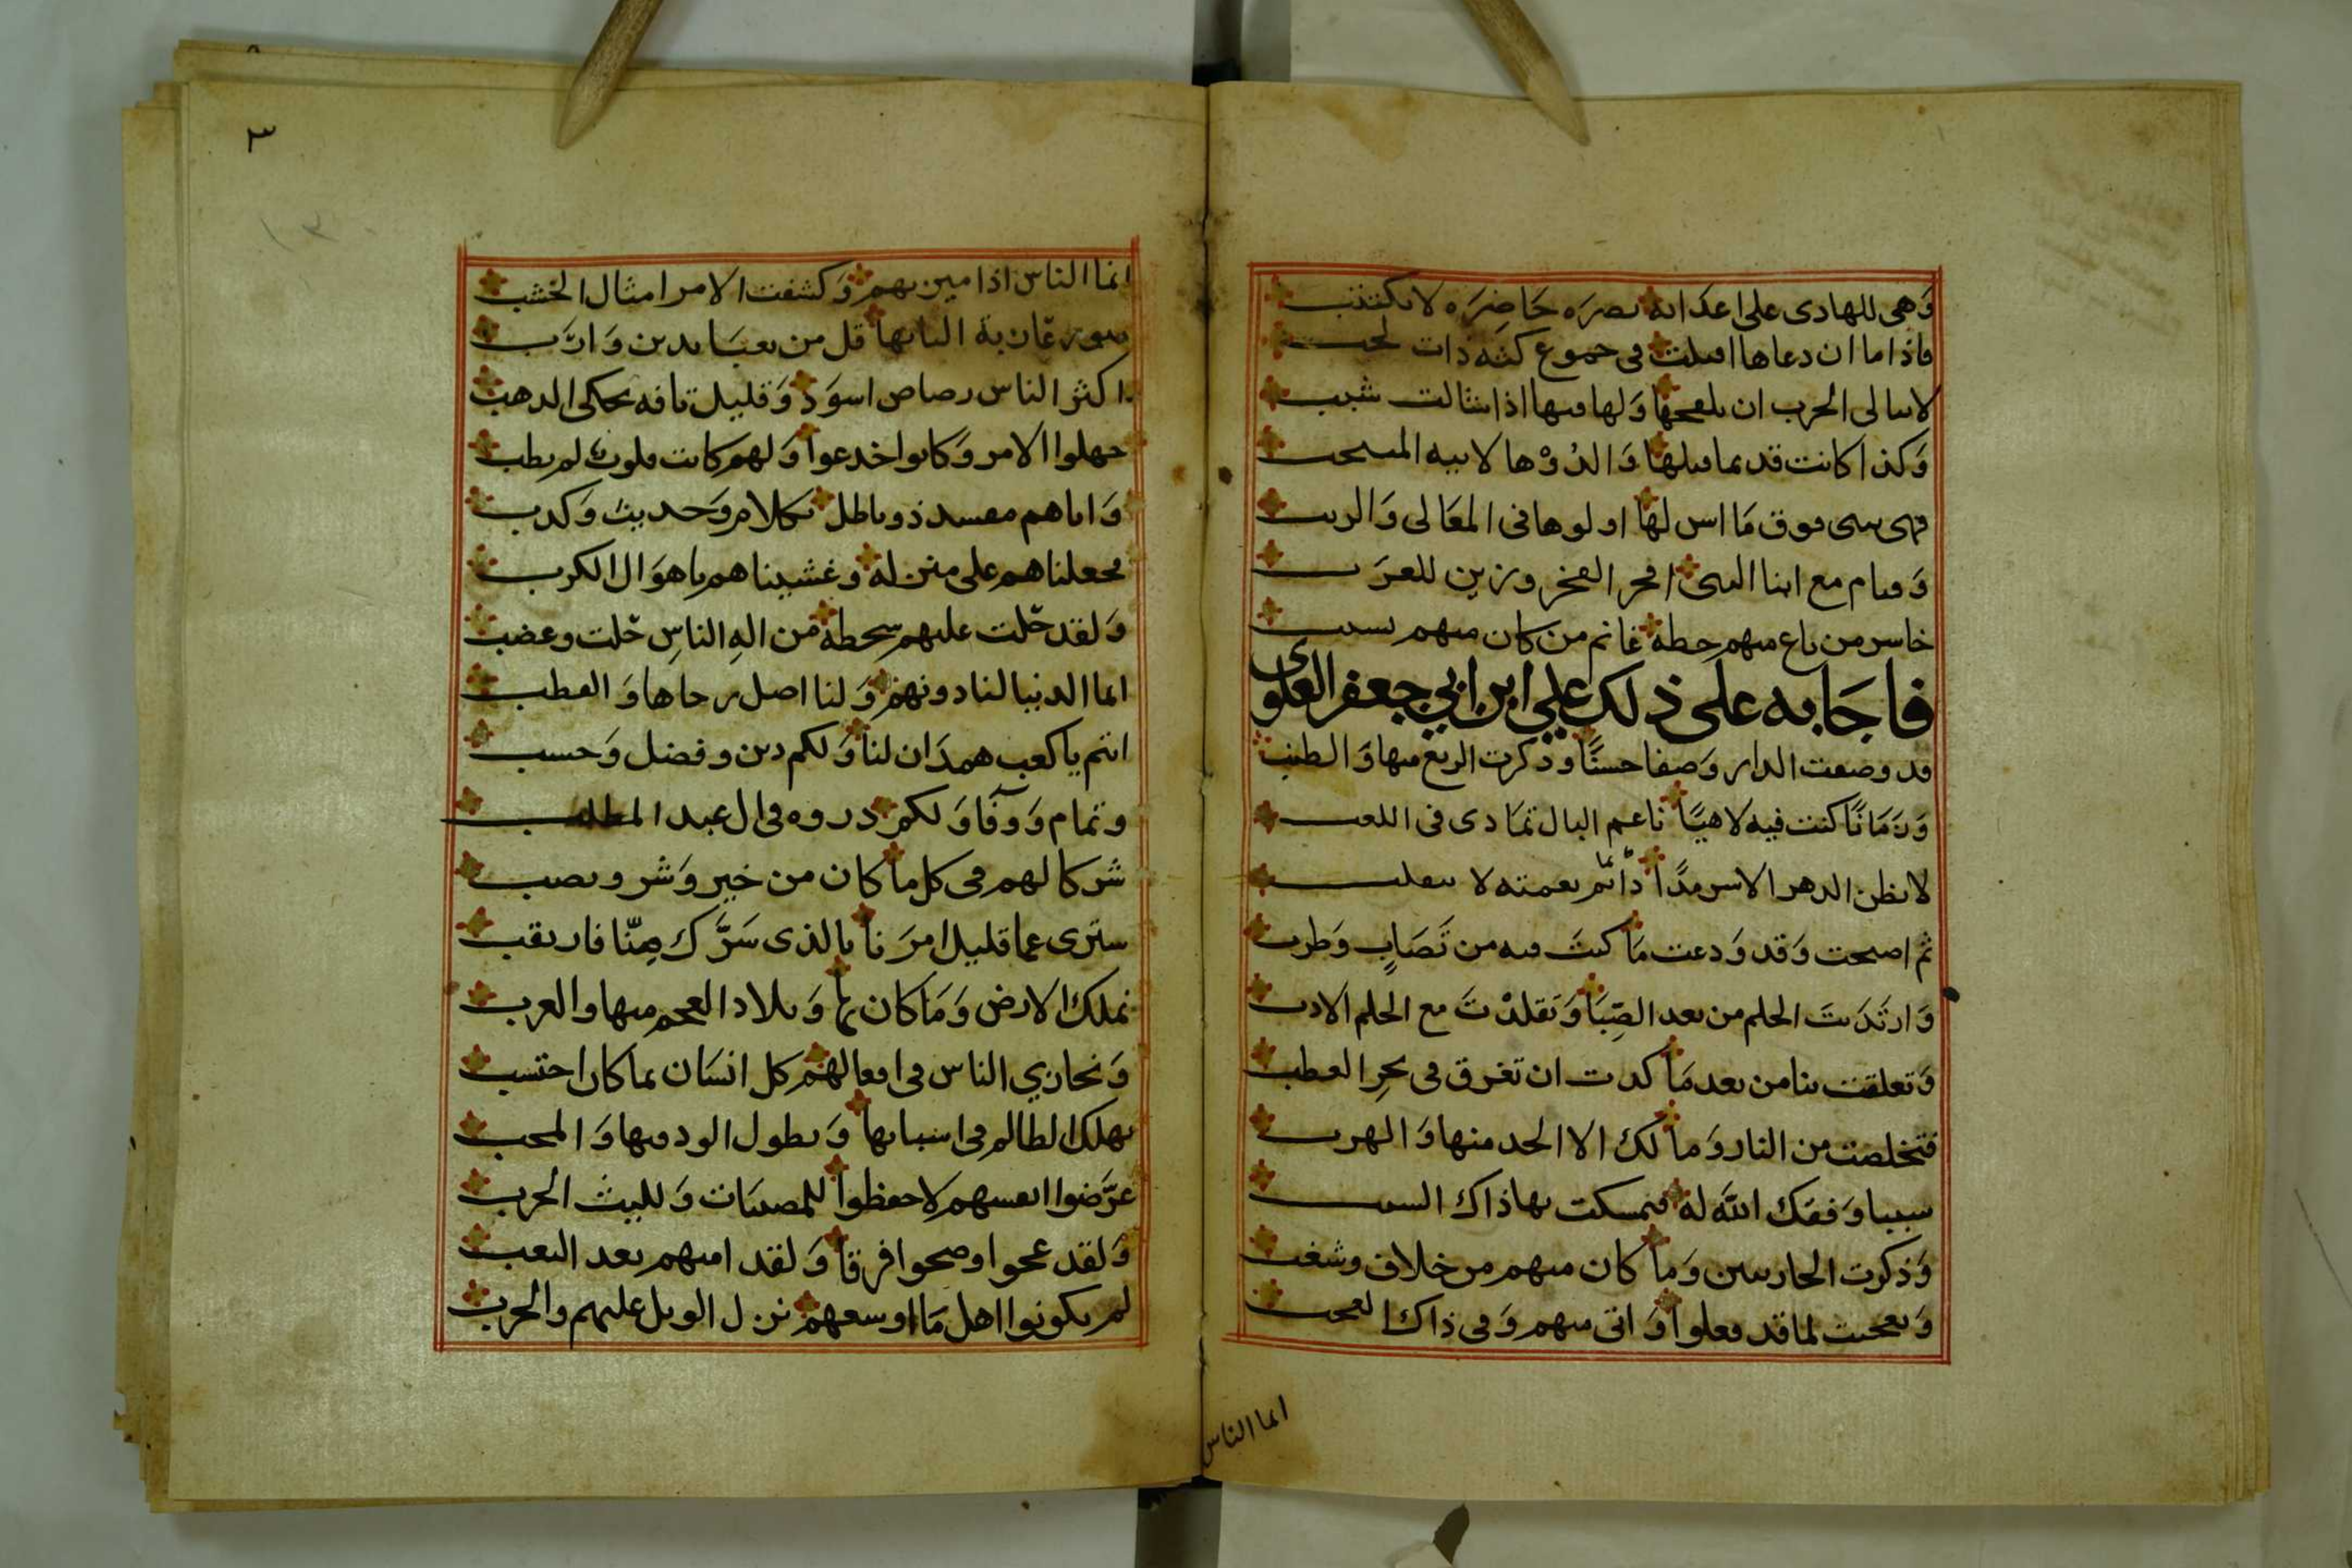 وَهى للهادى على اعدائه نصرَه حَاضِرَه لا تكتذب
فاذا ما ان دعاها اقبلت فى جموع كثه ذات لجب
لا تبالى الحرب ان تلقحها وَلها فيها اذا شالت شبب
وَكذا كانت قديما قبلها وَالدُوْها لابيه المنتجب
فهى تبنى فوق مَا اس لها اولوها فى المعَالى وَالرتب
وَقيام مع ابنا النبى افخر الفخر وزين للعرَب
خاسر من باع منهم حظه غانم من كان منهم بسبب
فاجَابه على ذلك علي ابن ابي جعفر العلوى
قد وصفت الدار وَصفا حسنًا وذكرت الربع منها وَالطنب
وَزَمَانًا كنت فيه لاهيًا ناعم البال تمَادى فى اللعب
لا تظن الدهر الا سرمدًا دائم نعمته لا ينقلب
ثم اصبحت وَقد وَدعت مَا كنتَ فيه من تَصَابٍ وَطرب
وَارتَدَيتَ الحلم من بعد الصِّبَا وَتقلدْتَ مع الحلم الادب
وَتعلقت بنا من بعد مَا كدت ان تغرق فى بحرِ العطب
فتخلصت من النار وَما لك الا الجد منها وَالهرب
سببا وَفقك اللَّه له فتمسكت بهاذاك السبب
وَذكرت الحارثيين وَما كان منهم من خلاف وشغب
وَتعجبت لما قد فعلوا وَاتى منهم وَفى ذاك العجب
انما الناس
٣
انما الناس اذا ميز بهم وَكشفت الامر امثال الخشب
قل من يعبَا بدين وَادَب
اكثر الناس رصاص اسوَد وَقليل تافه يحكى الذهب
جهلوا الامر وَكانوا خدعوا وَلهم كانت قلوب لم تطب
وَاتاهم مفسد ذو باطل بكلام وَحديث وَكذب
فجعلناهم على منزلة وغشيناهم باهوَال الكرب
وَلقد حَلت عليهم سخطه من الهِ الناسِ حَلت وغضب
انما الدنيا لنا دونهم وَلنا اصل رحاها وَالقطب
انتم يا كعب همدَان لنا وَلكم دين وفضل وَحسب
وتمام وَوفَا وَلكم ذروه فى ال عبد المطلب
شركا لهم فى كل ما كان من خير وَشر ونصب
سترى عما قليل امرَنا بالذى سَرَّك مِنّا فارتقب
نملك الارض وَمَا كان بها وَبلاد العجم منها والعرب
وَنجازي الناس فى افعالهم كل انسَان بما كان احتسب
يهلك الظالم فى اسبابها وَيطول الود فيها وَالمحب
عرَّضوا انفسهم لا حفظوا للمصيبَات وَلليث الحرب
وَلقد عجوا وصحوا فرقا وَلقد امنهم بعد التعب
لم يكونوا اهل مَا اوسعهم نزل الويل عليهم والحرب